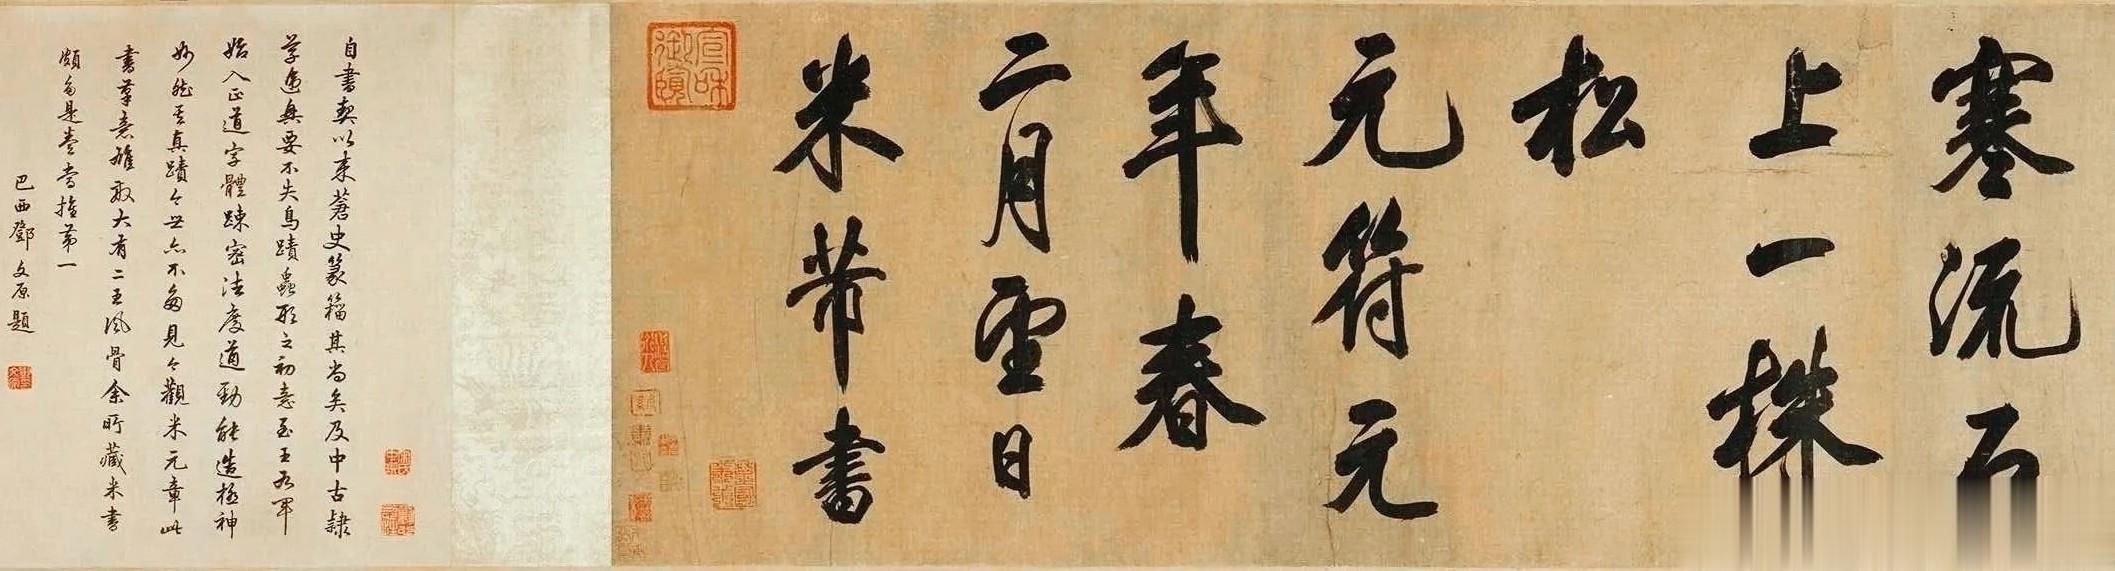 寒流石
上一株
松
元符元
年春
二月望日
米芾書
自書契以來蒼史篆籀其尚矣及中古隸
學遞興要不失鳥蹟蟲形之初意至王右軍
始入正道字體踈密法度遒勁能造極神
妙然其真蹟今世亦不多見今觀米元章此
書筆意雄放大有二王風骨余所藏米書
頗多是卷當推第一
巴西鄧文原題